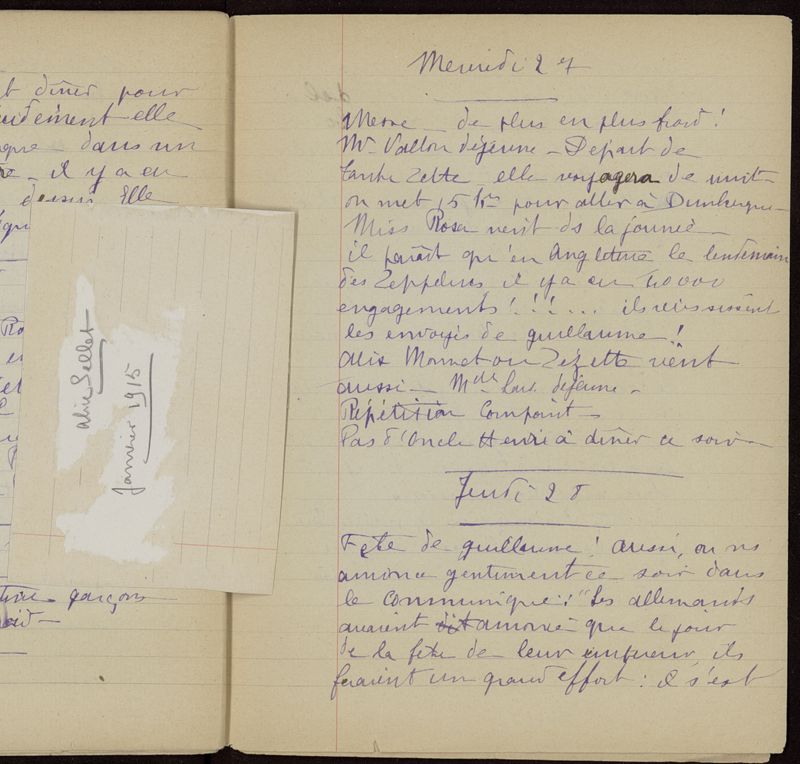 t dîner pour
cidément elle
dans un
re - il y a eu
dessus Elle
Alice Sellet
Janvier 1915
garçons
Mercredi 27
Messe de plus en plus froid !
Mr Vallon déjeune - Départ de
tante Zette elle voyagera de nuit
on met 15 hres pour aller à Dunkerque -
Miss Rosa vient ds la journée -
il paraît qu'en Angleterre le lendemain
des Zeppelins il y a eu 40000
engagements ! ! ! . . . ils réussissent
les envoyés de guillaume !
Alix Monnet ou Zézette vient
aussi - Mlle déjeune -
Répétition Compoint -
Pas d'Oncle Henri à dîner ce soir -
Jeudi 28
Fête de guillaume ! aussi, on ns
annonce gentiment ce soir dans
le communiqué : "les allemands
avaient dit annoncé que le jour
de la fête de leur empereur, ils
feraient un grand effort : il s'est